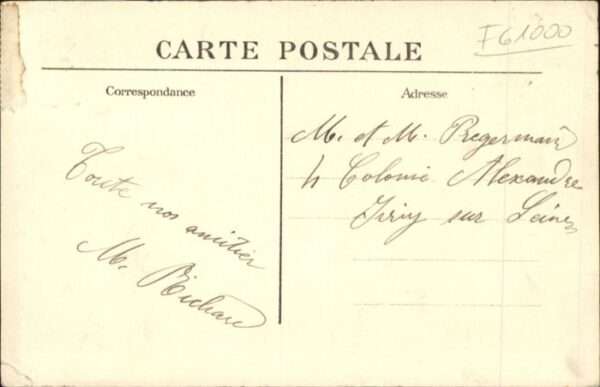 F61000
CARTE POSTALE
Correspondance
Adresse
Toute nos amitier
M. Richard
M. et M. Pregermain
4 Colonie Alexandre
Ivry sur Seine